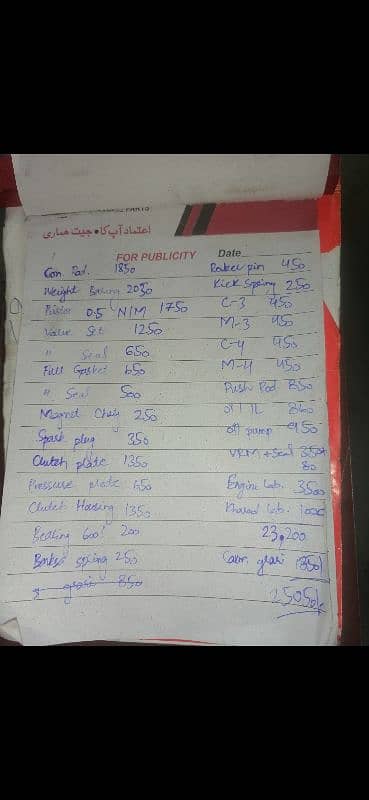 PARTS
اعتماد آپ کا • جیت ھماری
FOR PUBLICITY Date
Con Rod. 1850
Weight Baring 2050
Piston 0.5 N/M 1750
Valve Set 1250
" Seal 650
Full Gasket 650
" Seal 500
Magnet Chain 250
Spark plug 350
Clutch plate 1350
Pressure plate 650
Clutch Housing 1350
Bearing 6001 200
Spring 250
850
Rocker pin 450
Kick Spring 250
C-3 450
M-3 450
C-4 450
M-4 450
Push Rod 850
850
oil pump 950
+ Seal 350+
80
Engine Lab. 3500
Kharad Lab. 1000
23,200
Cam grari 1850
25050/-